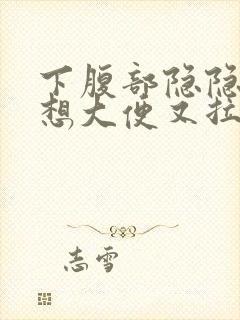 下腹部隐隐
想大便又拉
志雪